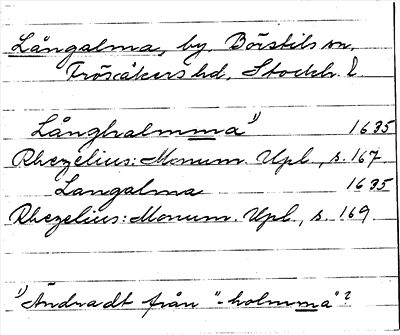 Långalma, by, Börstils sn,
Frösåkers hd, Stockh. l.
Långhalmma¹⁾ 1635
Rhezelius: Monum. Upl., s. 167
Langalma 1635
Rhezelius: Monum. Upl., s. 169
¹⁾ Ändradt från "-holmma"?